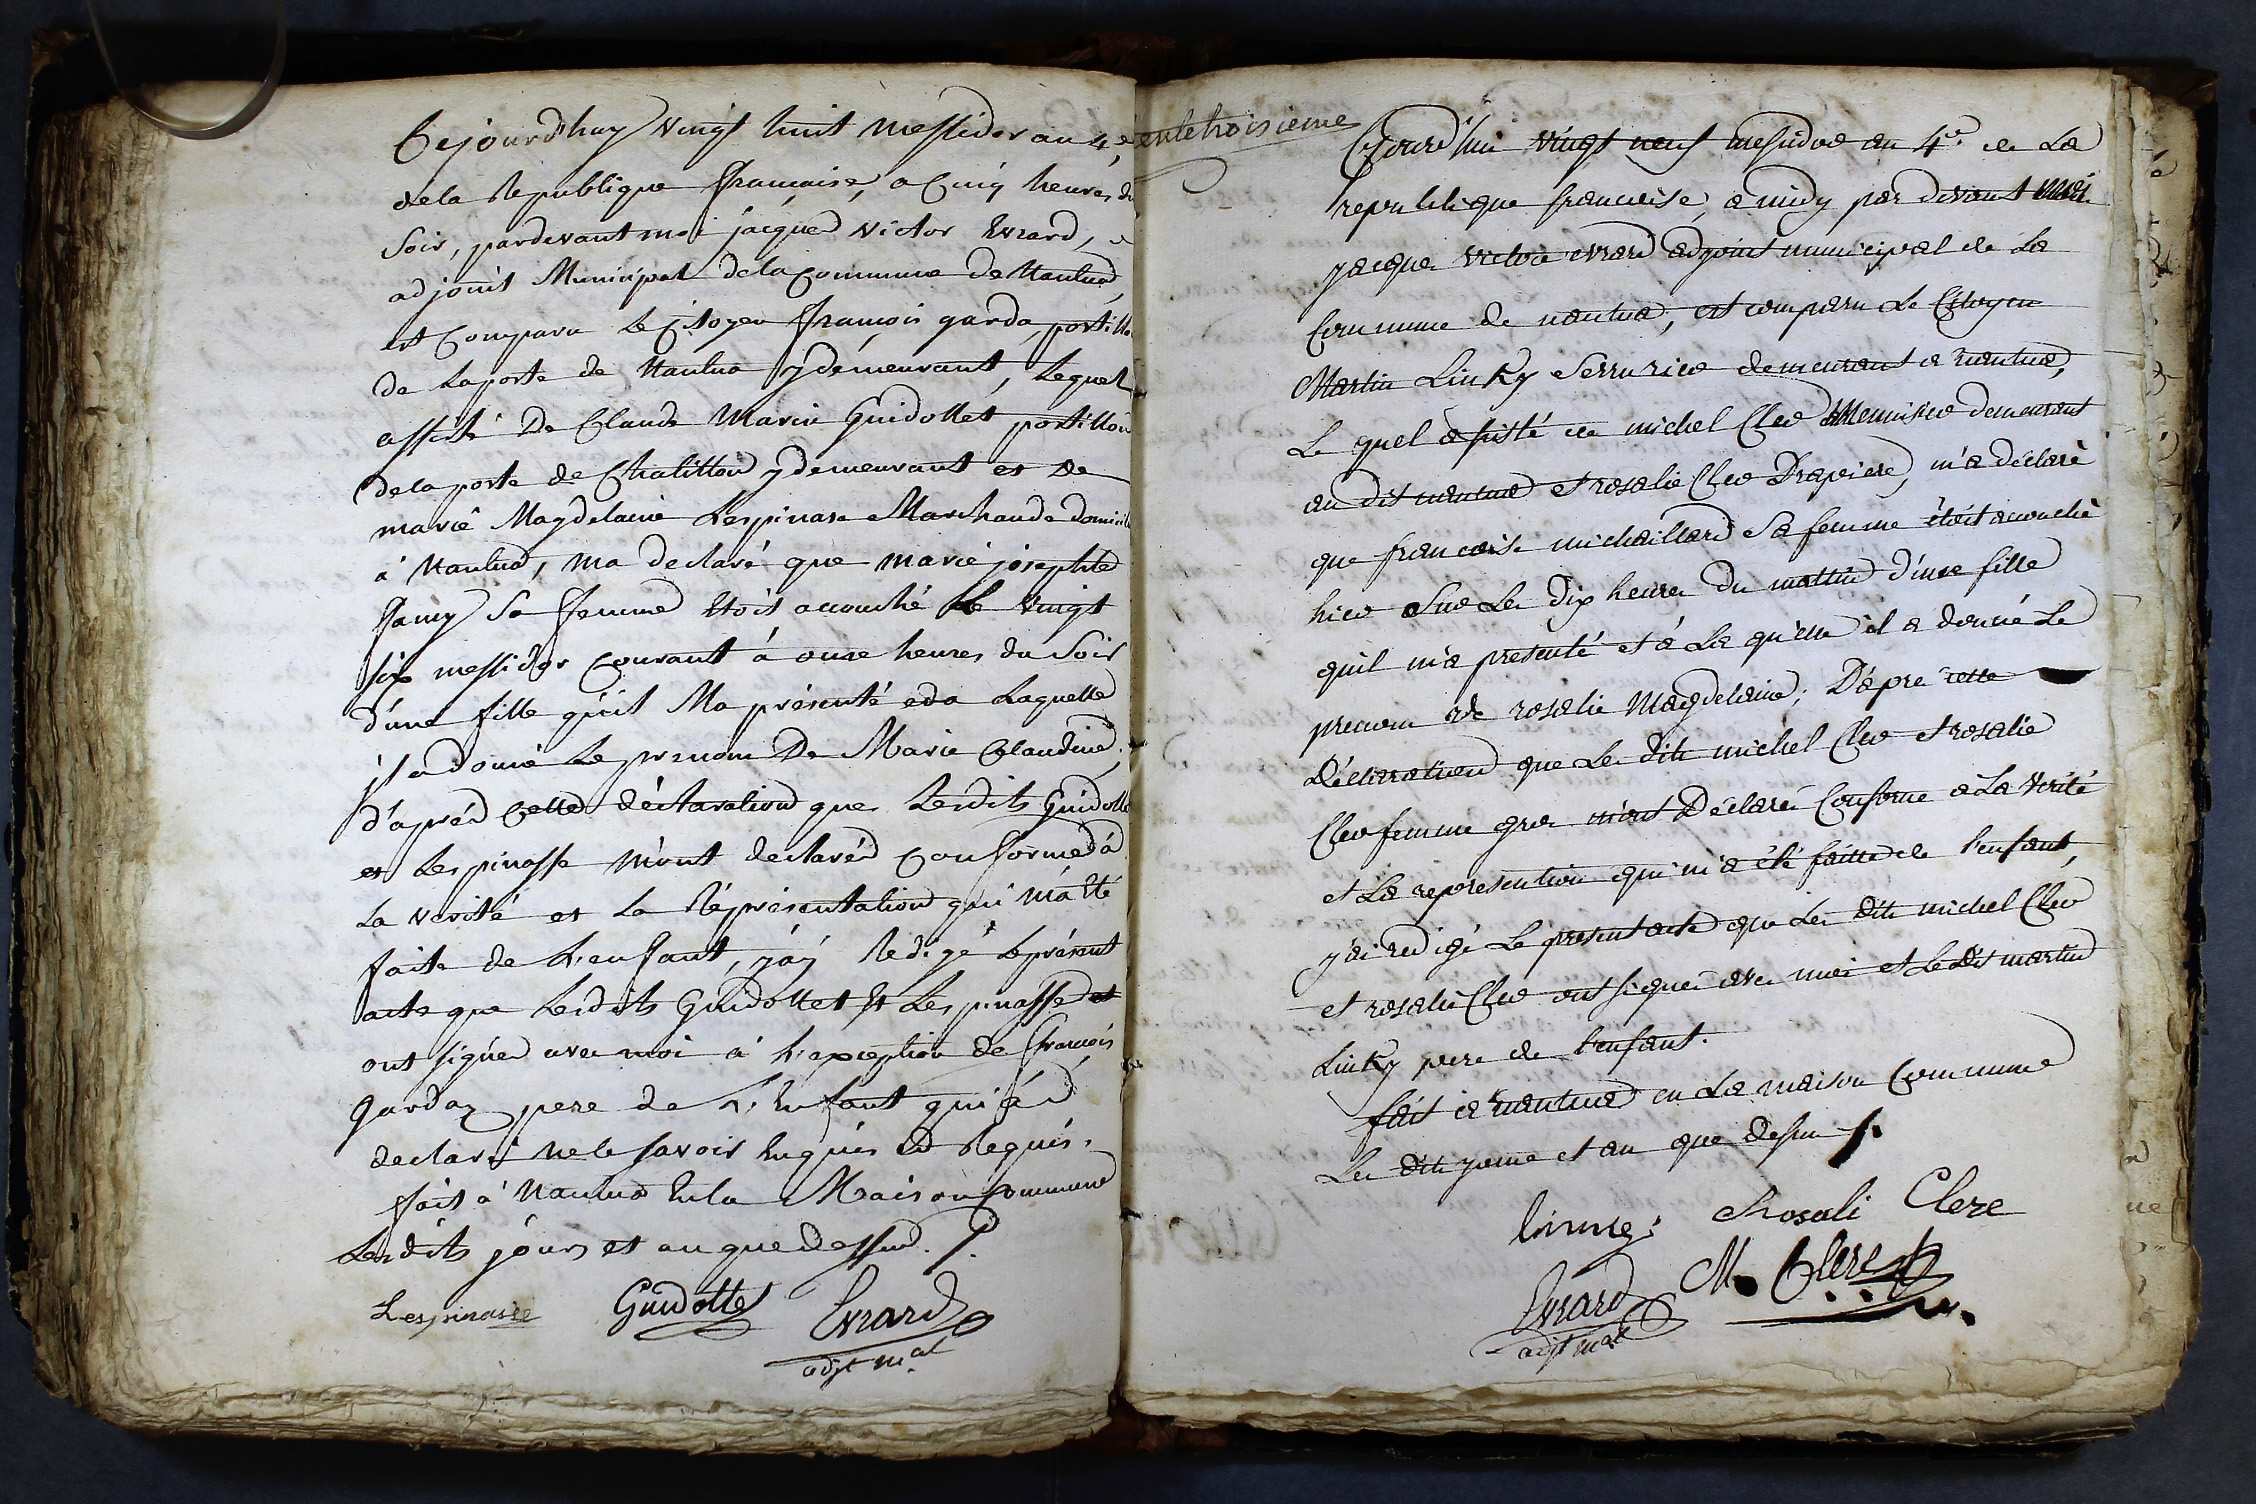 Cejourd'huy vingt huit messidor an 4e
de la Republique française, a Cinq heures du
Soir, pardevant moi jacques victor Evrard,
adjoint Municipal de la commune de Nantua,
est Comparu le Citoyen françois garda, postillon
de laposte de Nantua ydemeurant, Lequel
assisté De Claude Marie Guidollet postillon
delaposte de Chatillon ydemeurant et de
marie Magdelaine Lespinase Marchande domicile
à Nantua, ma declaré que marie josephte
famy Sa femme Etoit acouché Le vingt
six messidor Courant à onze heures du Soir
d'une fille qu'il Ma présenté eda Laquelle
il a donné Le prenom De Marie Claudine,
d'après Cette déclaration que Lesdits Guidolle
et Lespinasse M'ont declarés Conforme à
La verité et La Représentation qui m'a Eté
faite de L'enfant, j'ay Redigé Leprésent
acte que Lesdits Guidollet Et Lespinasse
ont signés avec moi à L'exception de françois
Gardaz pere de L'Enfant qui a
declaré ne le savoir Enquis Et Requis.
fait à Nantua En la Maison Commune
Lesdits jours et an que dessus.
Lespinasse Guidollet Evrard
adjt mal
entetroisieme
Cejourd'hui vingt neuf messidor an 4e de La
republique francaise, a midy par devant moi
jacque victor evrard adjoint municipal de La
Commune de nantua, est comparu Le Citoyen
Martin Linky Serrurier demeurant a nantua,
Le quel asisté de michel Cler Menuisier demeurant
au dit nantua et rosalie Cler Drapiere, m'a déclaré
que francoise michaillard Sa femme étoit acouché
hier Sur Les dix heures du mattin d'une fille
quil m'a presenté et à La qu'elle il a donné Le
prenom de rosalie Magdelaine; D'apre cette
Déclaration que Les dits michel Cler et rosalie
Cler femme gros m'ont Déclaré Conforme a La verité
et La representtion qui m'a été faitte de l'enfant,
j'ai redigé Le present acte que Les dits michel Cler
et rosalie Cler ont signés avec moi et Le dit martin
Linky pere de l'enfant.
fait a nantua en La maison Commune
Les dits jour et an que dessus
Rosali Clere
Evrard M. Clere
adjt mal